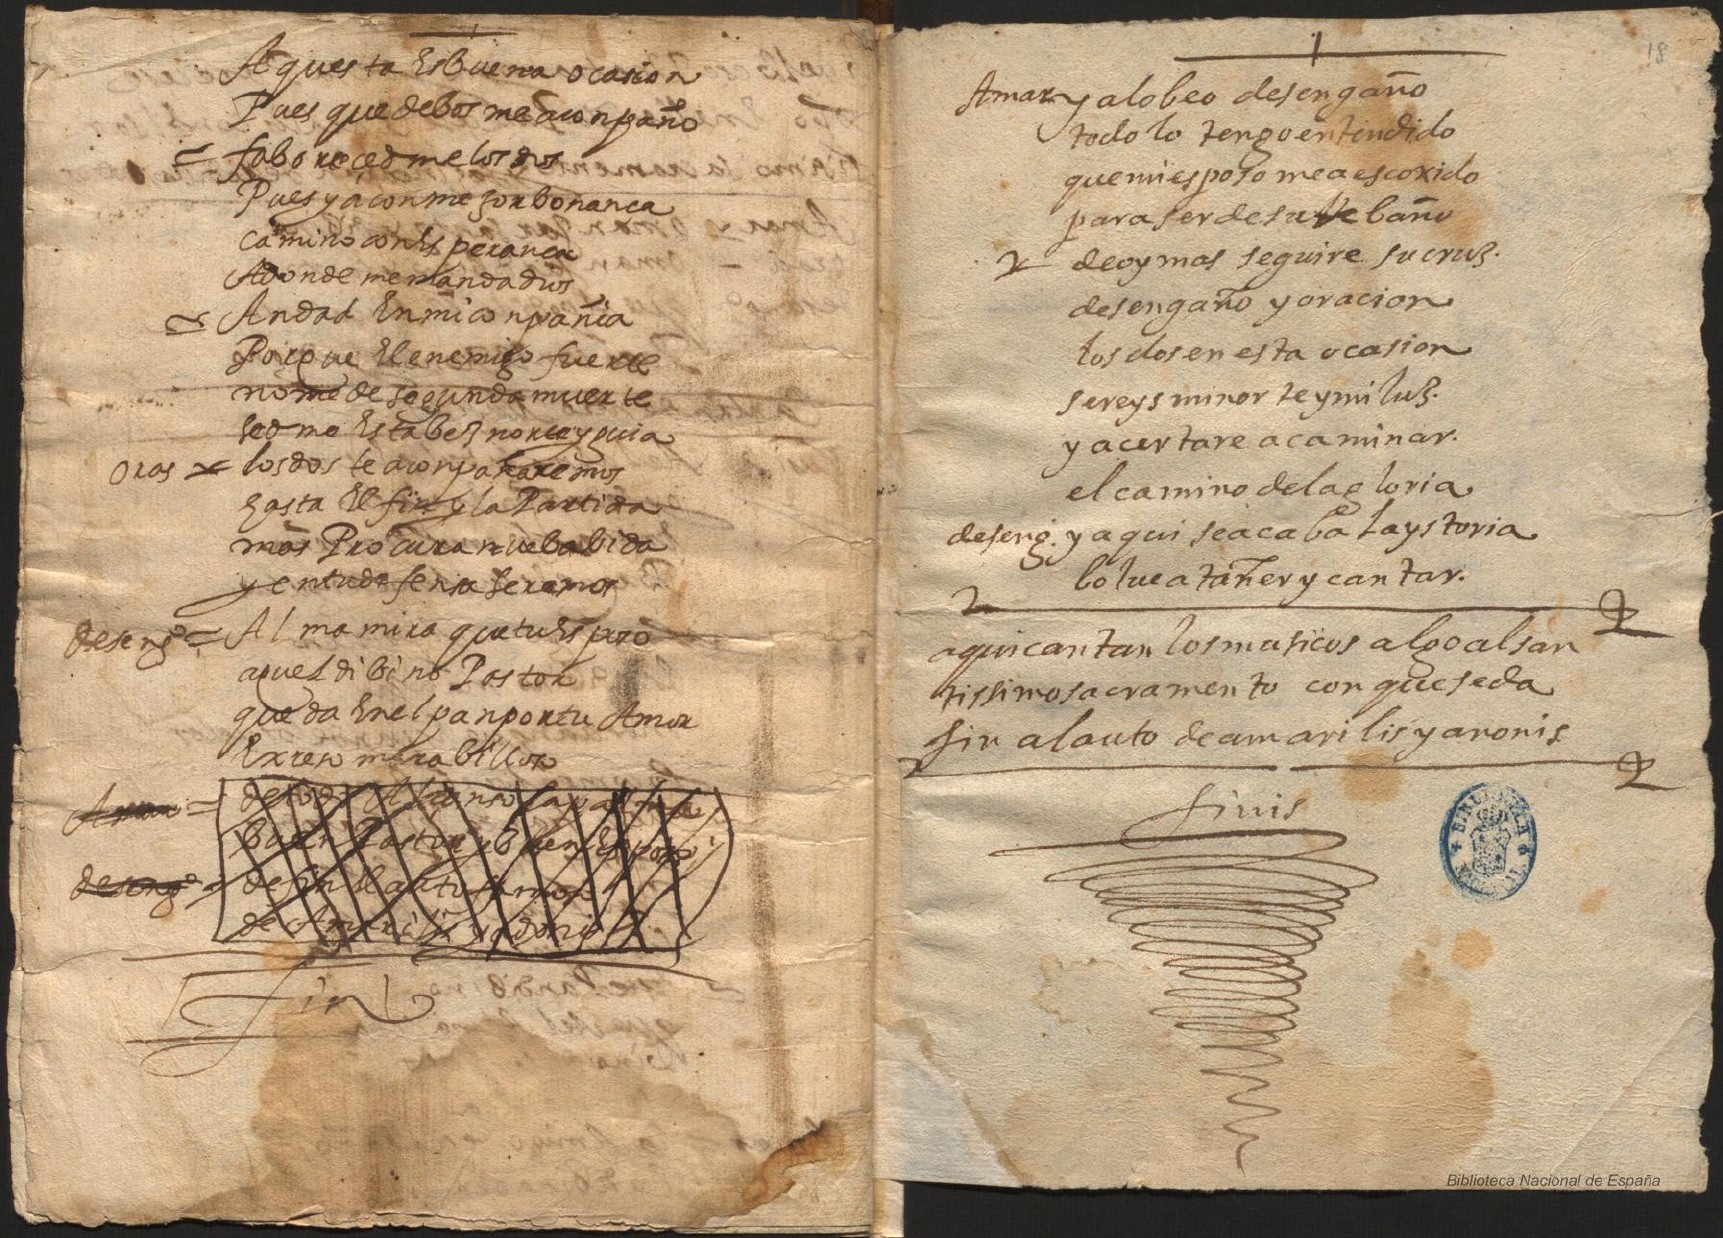 Aquesta Es buena ocasion
Pues que de bos me aconpaño
= faboreced me los dos
Pues ya con me Jor bonança
camino con Esperança
Adonde me manda dios
= Andad En mi conpañia
Porque El enemigo fuerte
no me de segunda muerte
sed me Esta bez norte y guia
oras = los dos te aconpañaremos
hasta El fin y la Partida
mas Procura nueba bida
y en tu defensa seremos
deseng.º = Alma mira que tu Esposo
aquel dibino Pastor
queda En el pan por tu Amor
Entero marabilloso
Amar =
buen Pastor y buen Esposo
deseng.º = de fin El auto famoso
de Amarilis y adonis
fin
18
Amar. ya lo beo desengaño
todo lo tengo entendido
que mi esposo me a escoxido
para ser de su Rebaño
de oy mas seguire su cruz.
desengaño y oracion
los dos en esta ocasion
sereys mi norte y mi luz.
y acertare a caminar.
el camino de la gloria
deseng. y aqui se acaba la ystoria
buelue a tañer y cantar.
aqui cantan los musicos algo al san
tissimo sacramento con que se da
fin al auto de amarilis y anonis
finis
Biblioteca Nacional de España